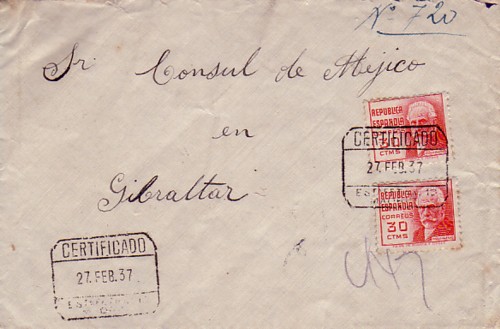 Nº 720
Sr. Consul de Méjico
en
Gibraltar
REPUBLICA
ESPAÑOLA
CTMS
CERTIFICADO
27.FEB.37
REPUBLICA
ESPAÑOLA
CORREOS
30
CTMS
CERTIFICADO
27.FEB.37